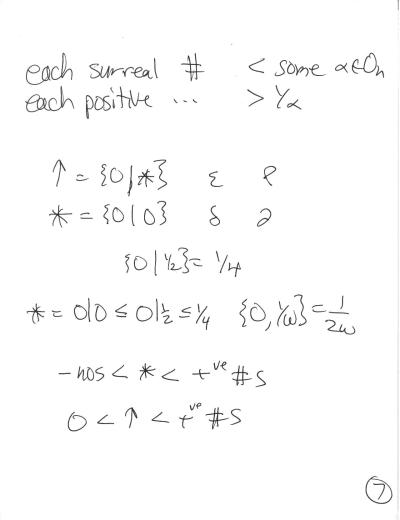 each surreal # < some α∈On
each positive ... > 1/α
↑ = {0|*} ε ρ
* = {0|0} δ ∂
{0|1/2} = 1/4
* = 0|0 ≤ 0|1/2 ≤ 1/4 {0, 1/ω} = 1/2ω
-nos < * < +ve #s
0 < ↑ < +ve #s
7